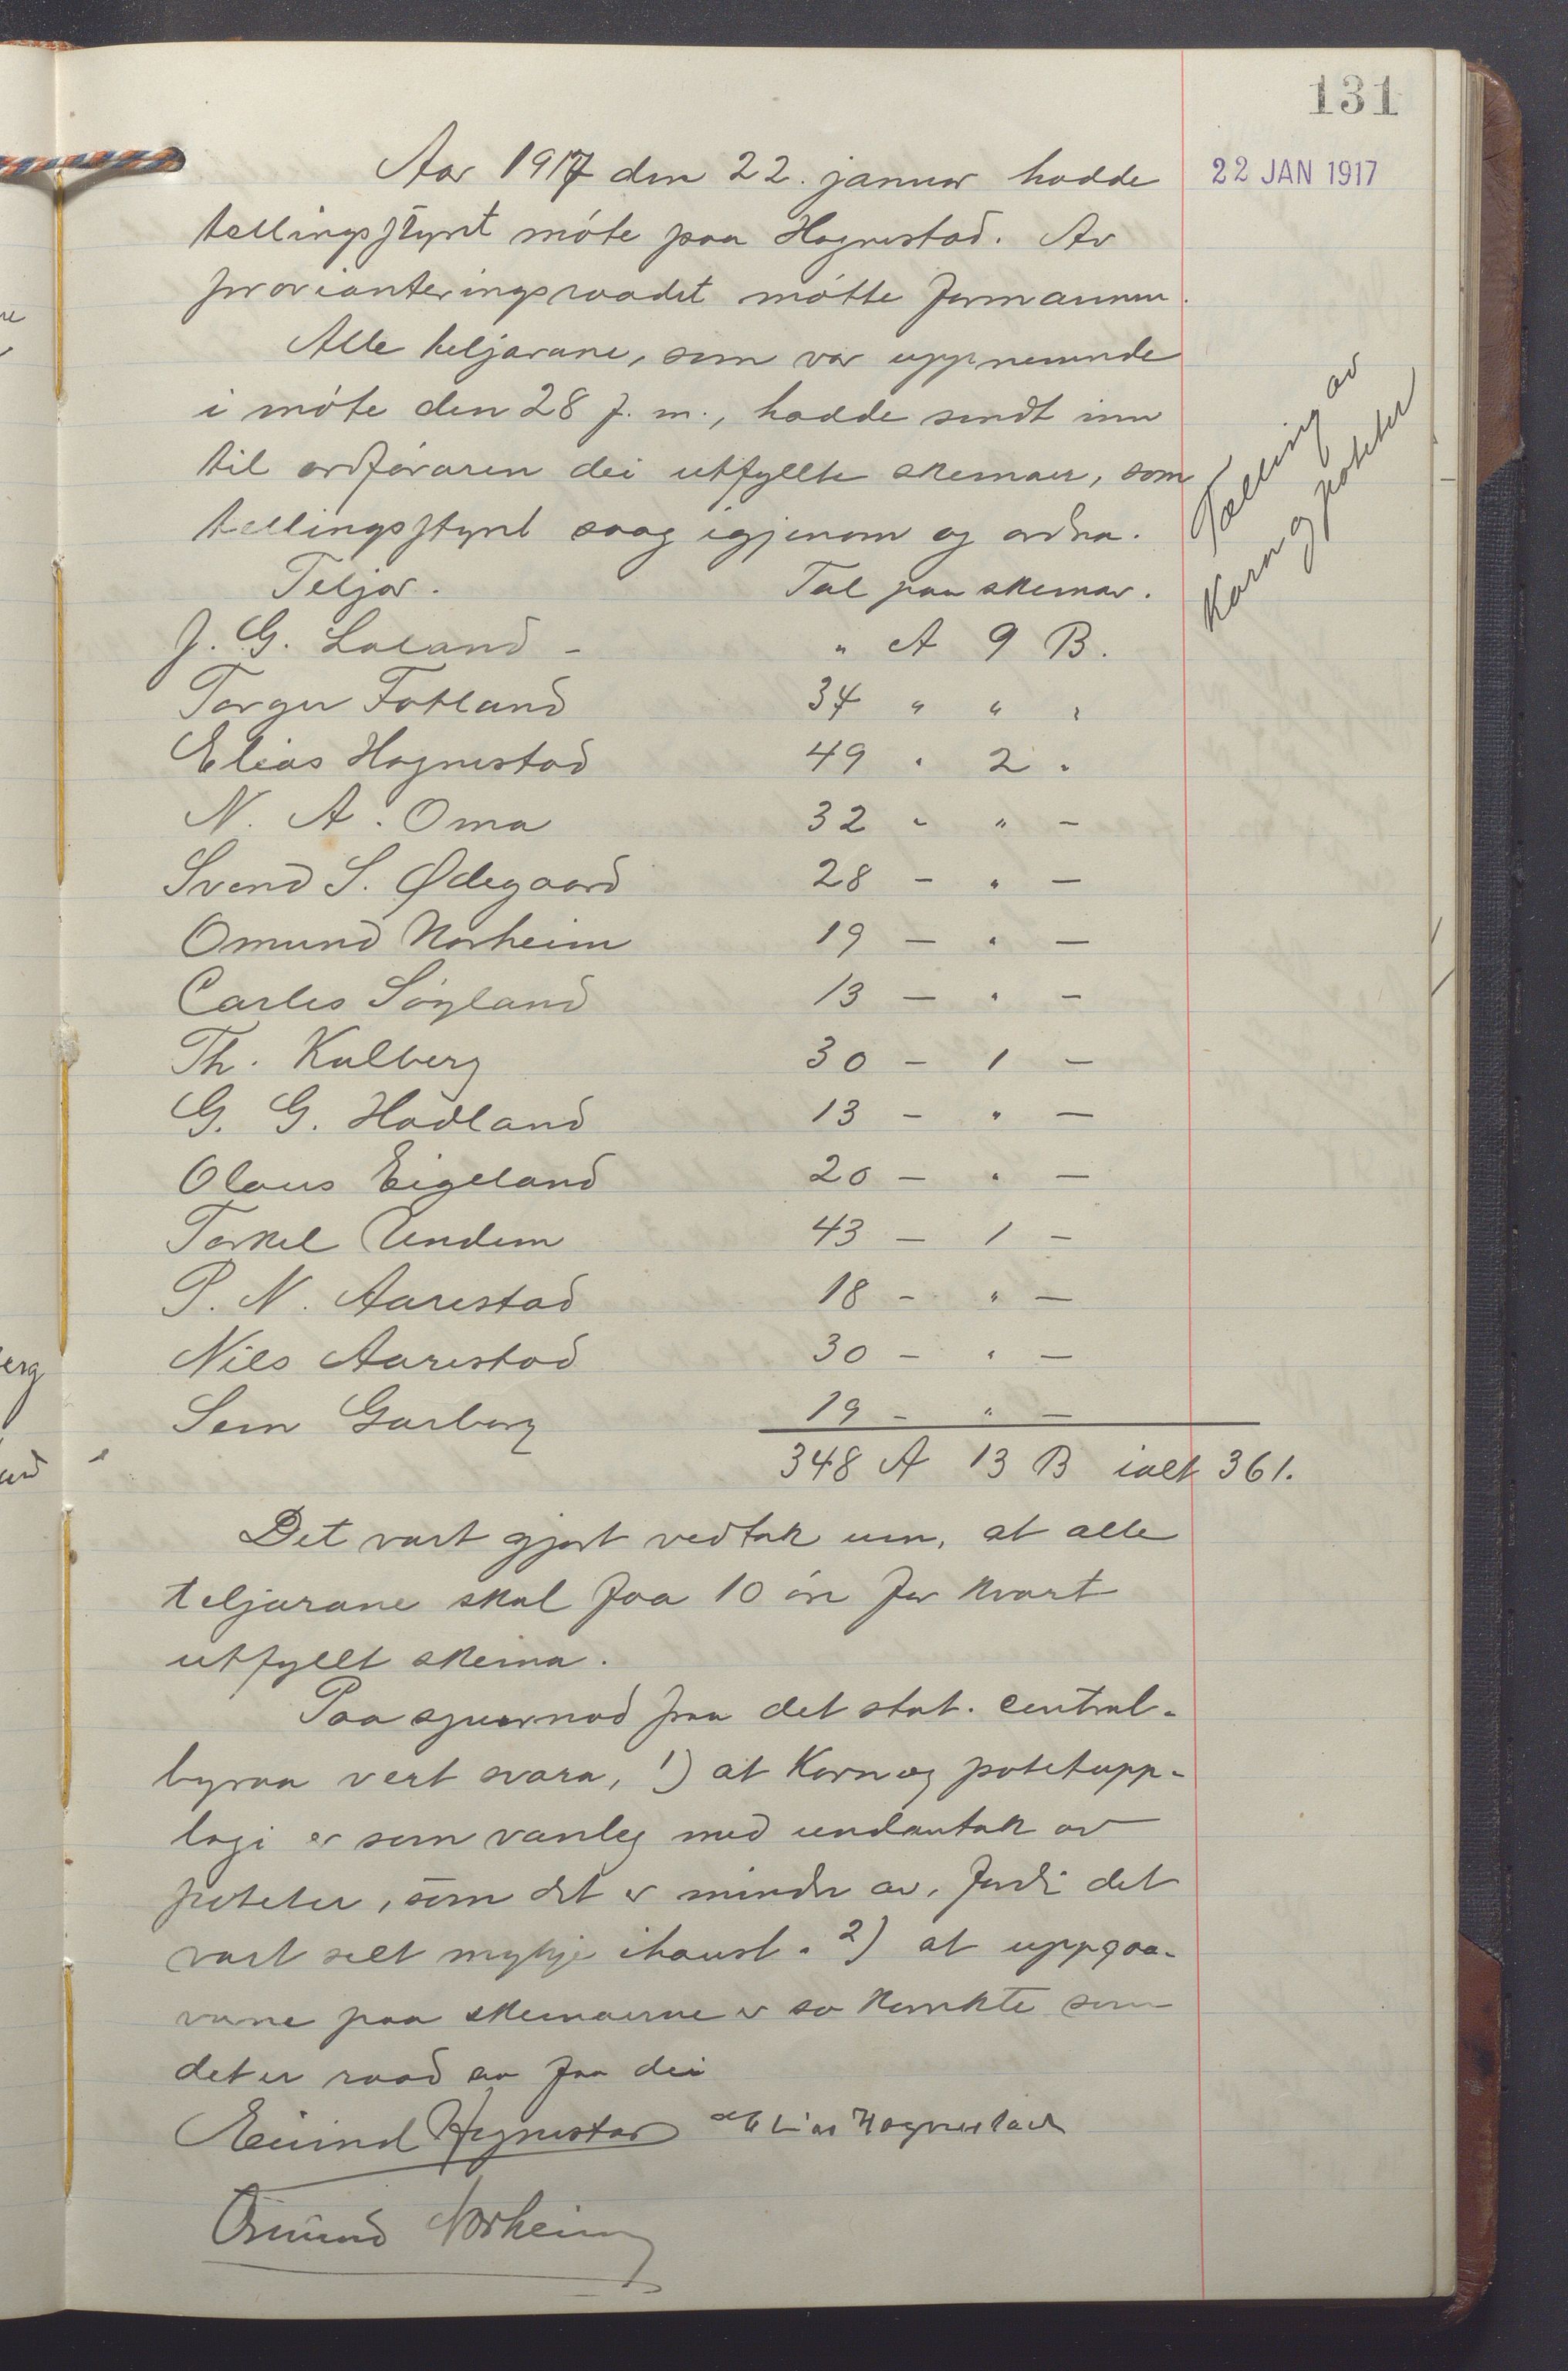 131
Aar 1917 den 22. januar hadde
22 JAN 1917
tellingsstyret møte paa Hognestad. Av
provianteringsraadet møtte formannen.
Alle teljarane, som var uppnemnde
i møte den 28 f. m., hadde sendt inn
til ordføraren dei utfyllte skemaer, som
tellingsstyret saag igjenom og ordna.
Tælling av
Korn og poteter
Teljar. Tal paa skemar.
J. G. Laland - " A 9 B.
Torger Fotland 34 " " "
Elias Hognestad 49 " 2 "
N. A. Oma 32 " " -
Svend S. Ødegaard 28 - " -
Omund Norheim 19 - " -
Carlis Søyland 13 - " -
Th. Kalberg 30 - 1 -
G. G. Hadland 13 - " -
Olaus Eigeland 20 - " -
Torkel Undem 43 - 1 -
P. N. Aarestad 18 - " -
Nils Aarestad 30 - " -
Sem Garborg 19 - " -
348 A 13 B ialt 361.
Det vart gjort vedtak um, at alle
teljarane skal faa 10 øre for kvart
utfyllt skema.
Paa spurnad fraa det stat. central-
byraa vert svara, 1) at Korn og potetupp-
lagi er som vanleg med undantak av
poteter, som det er mindre av, fordi det
vart selt mykje ihaust. 2) at uppgaa-
vune paa skemaerne er so korrekte som
det er raad aa faa dei
Eivind Hognestad Elias Hognestad
Omund Norheim